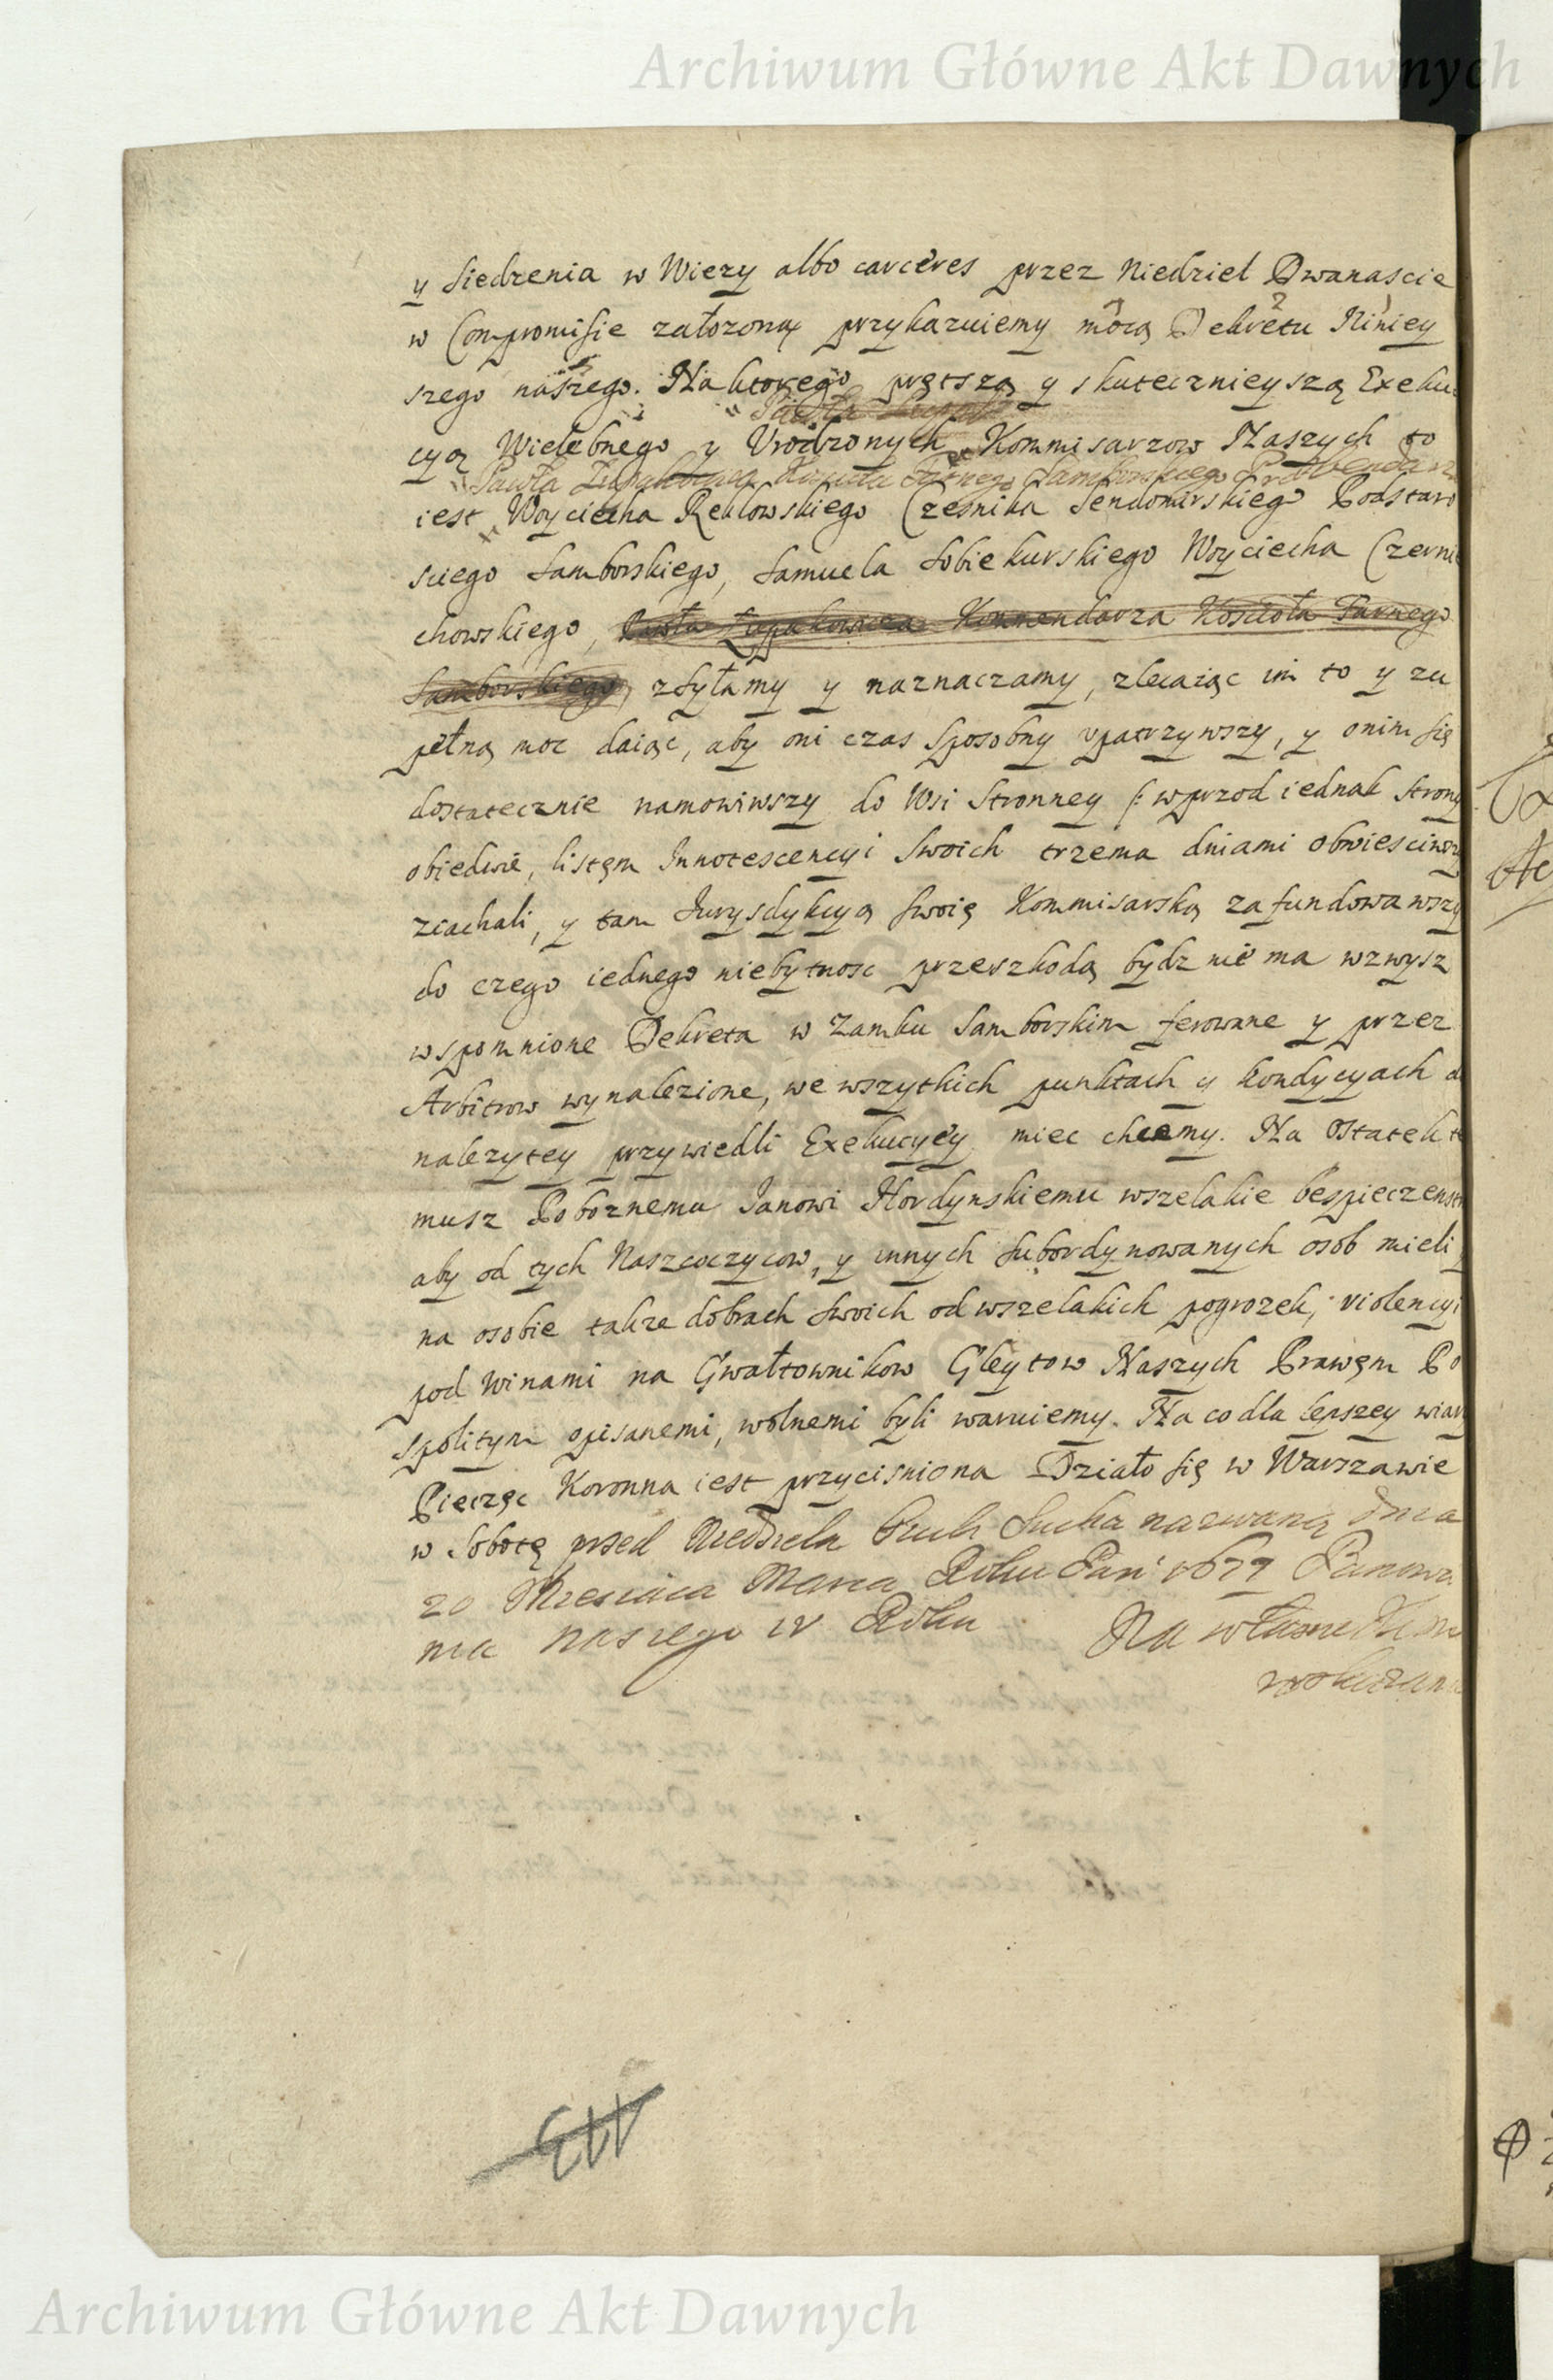 Archiwum Główne Akt Dawnych
y siedzenia w Wiezy albo carceres przez Niedziel Dwanascie
w Compromisie załozoną przykazuiemy mocą Dekretu Niniey
szego naszego. Na ktorego prętszą y skutecznieyszą Exeku
cyą Wielebnego y Vrodzonych Kommisarzow Naszych to
Pawła Koscioła Farnego Samborskiego
iest Woyciecha Reklowskiego Czesnika Sendomirskiego Podstaro
sciego Samborskiego, Samuela Sobiekurskiego Woyciecha Czerni
chowskiego, Pawła Kommendarza Koscioła Farnego
Samborskiego, zsyłamy y naznaczamy, zlecaiąc im to y zu
pełną moc daiąc, aby oni czas sposobny vpatrzywszy, y onim się
dostatecznie namowiwszy do Wsi Stronney /: wprzod iednak strony
obiedwie, listęm Innotescencyi swoich trzema dniami obwiesciwszy
ziachali, y tam Jurysdykcyą swoię Kommisarską zafundowawszy
do czego iednego niebytnosc przeszkodą bydz nie ma wzwysz
wspomnione Dekreta w Zamku Samborskim ferowane y przez
Arbitrow wynalezione, we wszytkich punktach y kondycyach do
nalezytey przywiedli Exekucyey miec chcemy. Na Ostatek te
musz Poboznemu Janowi Hordynskiemu wszelakie bespieczenst
aby od tych Naszczoczycow, y innych subordynowanych osob mieli
na osobie takze dobrach swoich od wszelakich pogrozek, violencyi
pod winami na Gwałtownikow Gleytow Naszych Prawęm Po
spolitym opisanemi, wolnemi byli waruiemy. Na co dla lepszey wiary
Pieczęc Koronna iest przycisniona Działo się w Warszawie
w Sobotę przed Niedziela Sucha nazwaną dnia
20 Miesiąca Marca Roku Pan 1677 Panowa
nia naszego IV Roku Na własne